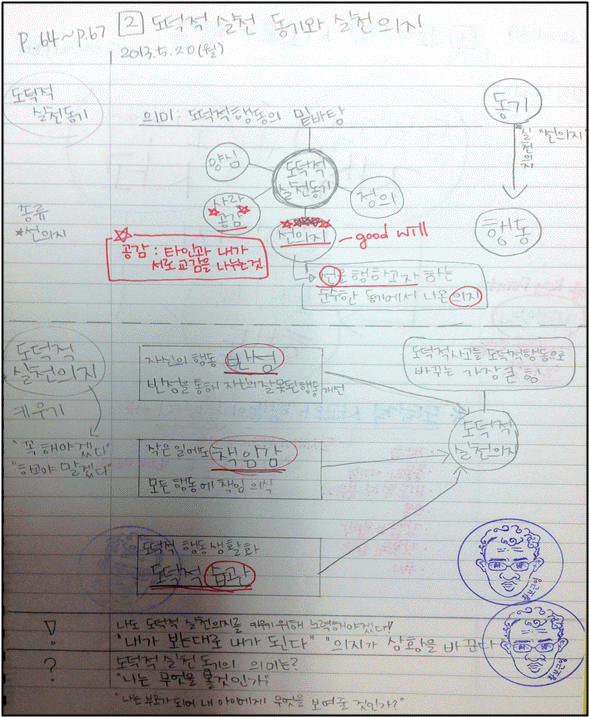 P.64~P.67 [2] 도덕적 실천 동기와 실천의지
2013.5.20(월)
도덕적
실천동기
의미 : 도덕적행동의 밑바탕
양심
도덕적
실천동기
정의
사랑
공감
선의지
good will
동기
실천의지
"선의지"
행동
종류
*선의지
공감 : 타인과 내가
서로 교감을 나누는것
선을 행하고자 하는
순수한 동기에서 나온 의지
도덕적
실천의지
키우기
"꼭 해야겠다"
"하고야 말겠다"
자신의 행동 반성
반성을 통해 자신의잘못된행동개선
작은 일에도 책임감
모든 행동에 책임 의식
도덕적 행동생활화
도덕적 습관
도덕적사고를 도덕적행동으로
바꾸는 가장 큰 힘
도덕적
실천의지
!
나도 도덕적 실천의지를 키우기위해 노력해야겠다!
"내가 보는대로 내가 된다" "의지가 상황을 바꾼다"
?
도덕적 실천 동기의 의미는?
"나는 무엇을 볼것인가?
"나는 부모가 되어 내 아이에게 무엇을 보여줄 것인가?"